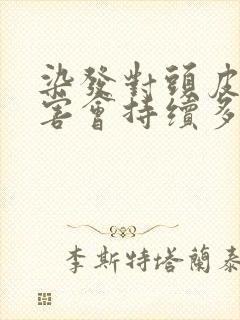 染發對頭皮
害會持續多
李斯特塔蘭泰